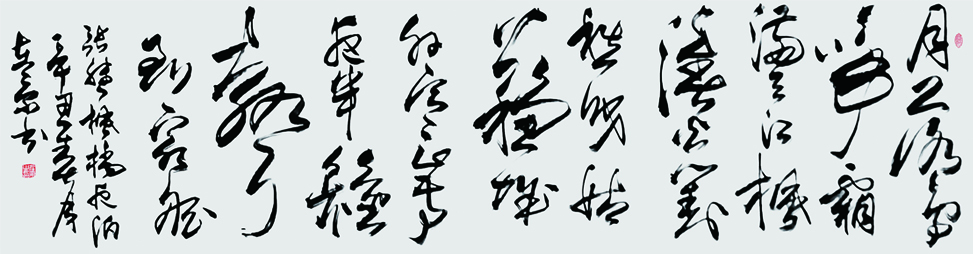 月落烏
啼霜
滿天江楓
漁火對
愁眠姑
蘇城
外寒山寺
夜半鐘
聲
到客船
張繼楓橋夜泊
辛丑
書